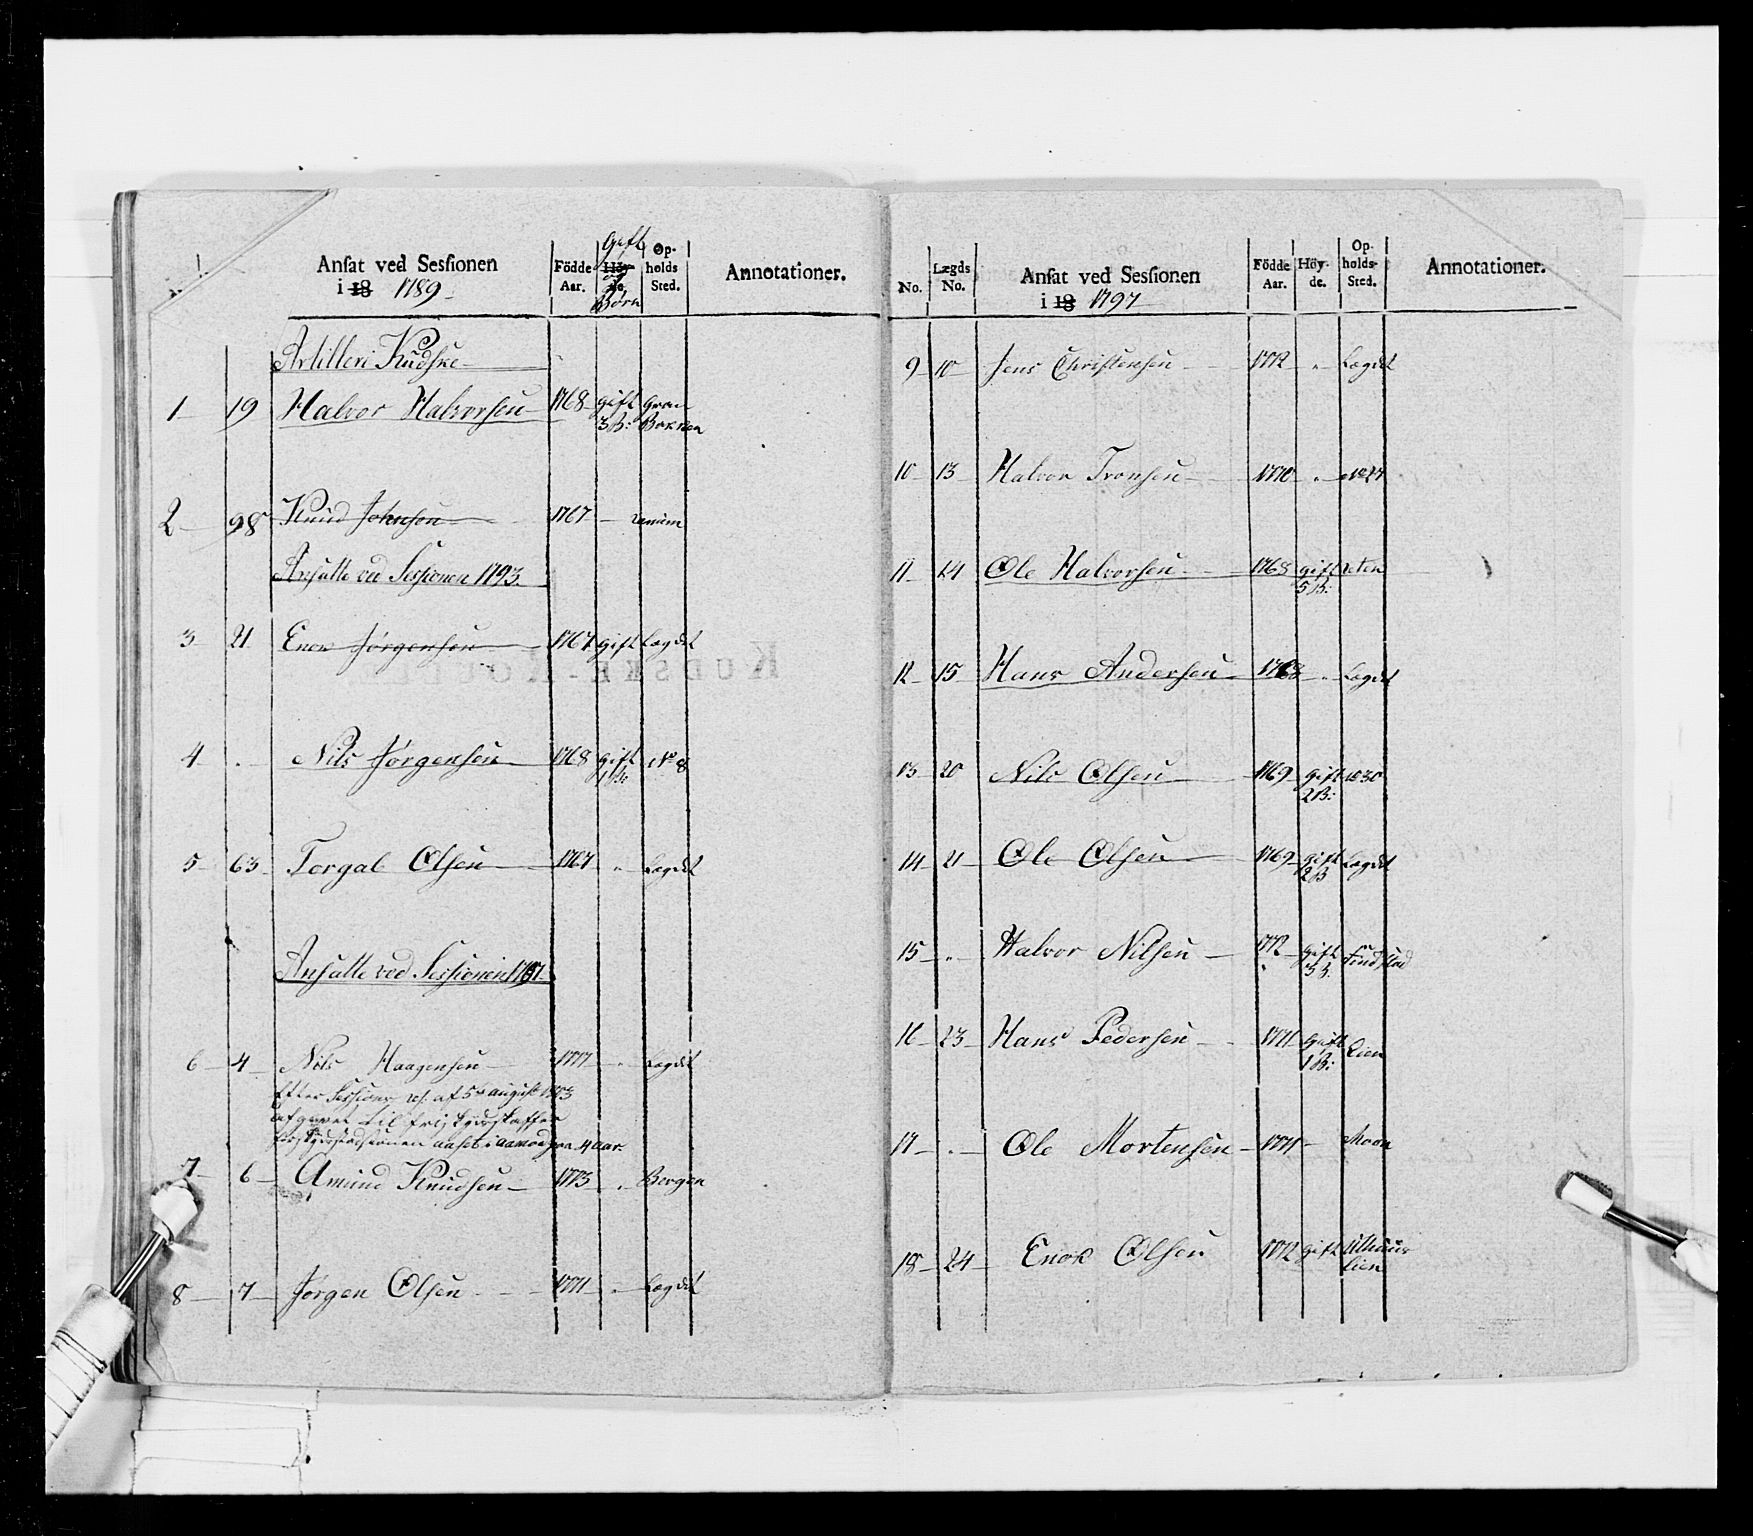 Ansat ved Sessionen
i 18 1789
Födde
Aar.
Gift
Höy-
og
de.
Børn
Op-
holds
Sted.
Annotationer.
Artilleri Kudske
1 19 Halvor Halvorsen 1768 gift
3 B:
2 98 Knud Johnsen 1767
Ansatte ved Sessionen 1793.
3 21 Enok Jørgensen 1767 gift Lægdet
4 Nils Jørgensen 1768 gift No 8
5 63 Torgal Olsen 1767 Lægdet
Ansatte ved Sessionen 1797
6 4 Nils Haagensen 1777 Lægdet
Efter Sessions af 5te august 1803
til
4 aar.
7 6 Amund Knudsen 1773 Bergan
8 7 Jørgen Olsen 1771 Lægdet
No.
Lægds
No.
Ansat ved Sessionen
i 18 1797
Födde
Aar.
Höy-
de.
Op-
holds-
Sted.
Annotationer.
9 10 Jens Christensen 1772 Lægdet
10 13 Halvor Tronsen 1770 No 27
11 14 Ole Halvorsen 1768 gift
5 B:
12 15 Hans Andersen 1768 Lægdet
13 20 Nils Olsen 1769 gift No 30
2 B:
14 21 Ole Olsen 1769 gift Lægdet
2 B
15 Halvor Nilsen 1772 gift
3 B.
16 23 Hans Pedersen 1771 gift Lien
1 B:
17 Ole Mortensen 1771 Moen
18 24 Enok Olsen 1772 gift
Lien
KUDSKE-ROULL